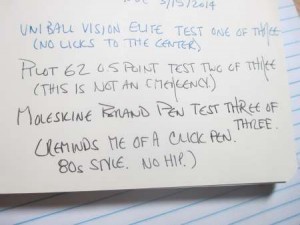 5/15/2014
UNIBALL VISION ELITE TEST ONE OF THREE
(NO LICKS TO THE CENTER)
PILOT G2 0.5 POINT TEST TWO OF THREE
(THIS IS NOT AN EMERGENCY.)
MOLESKINE PEN TEST THREE OF
THREE.
(REMINDS ME OF A CLICK PEN.
80s STYLE. NO HIP.)